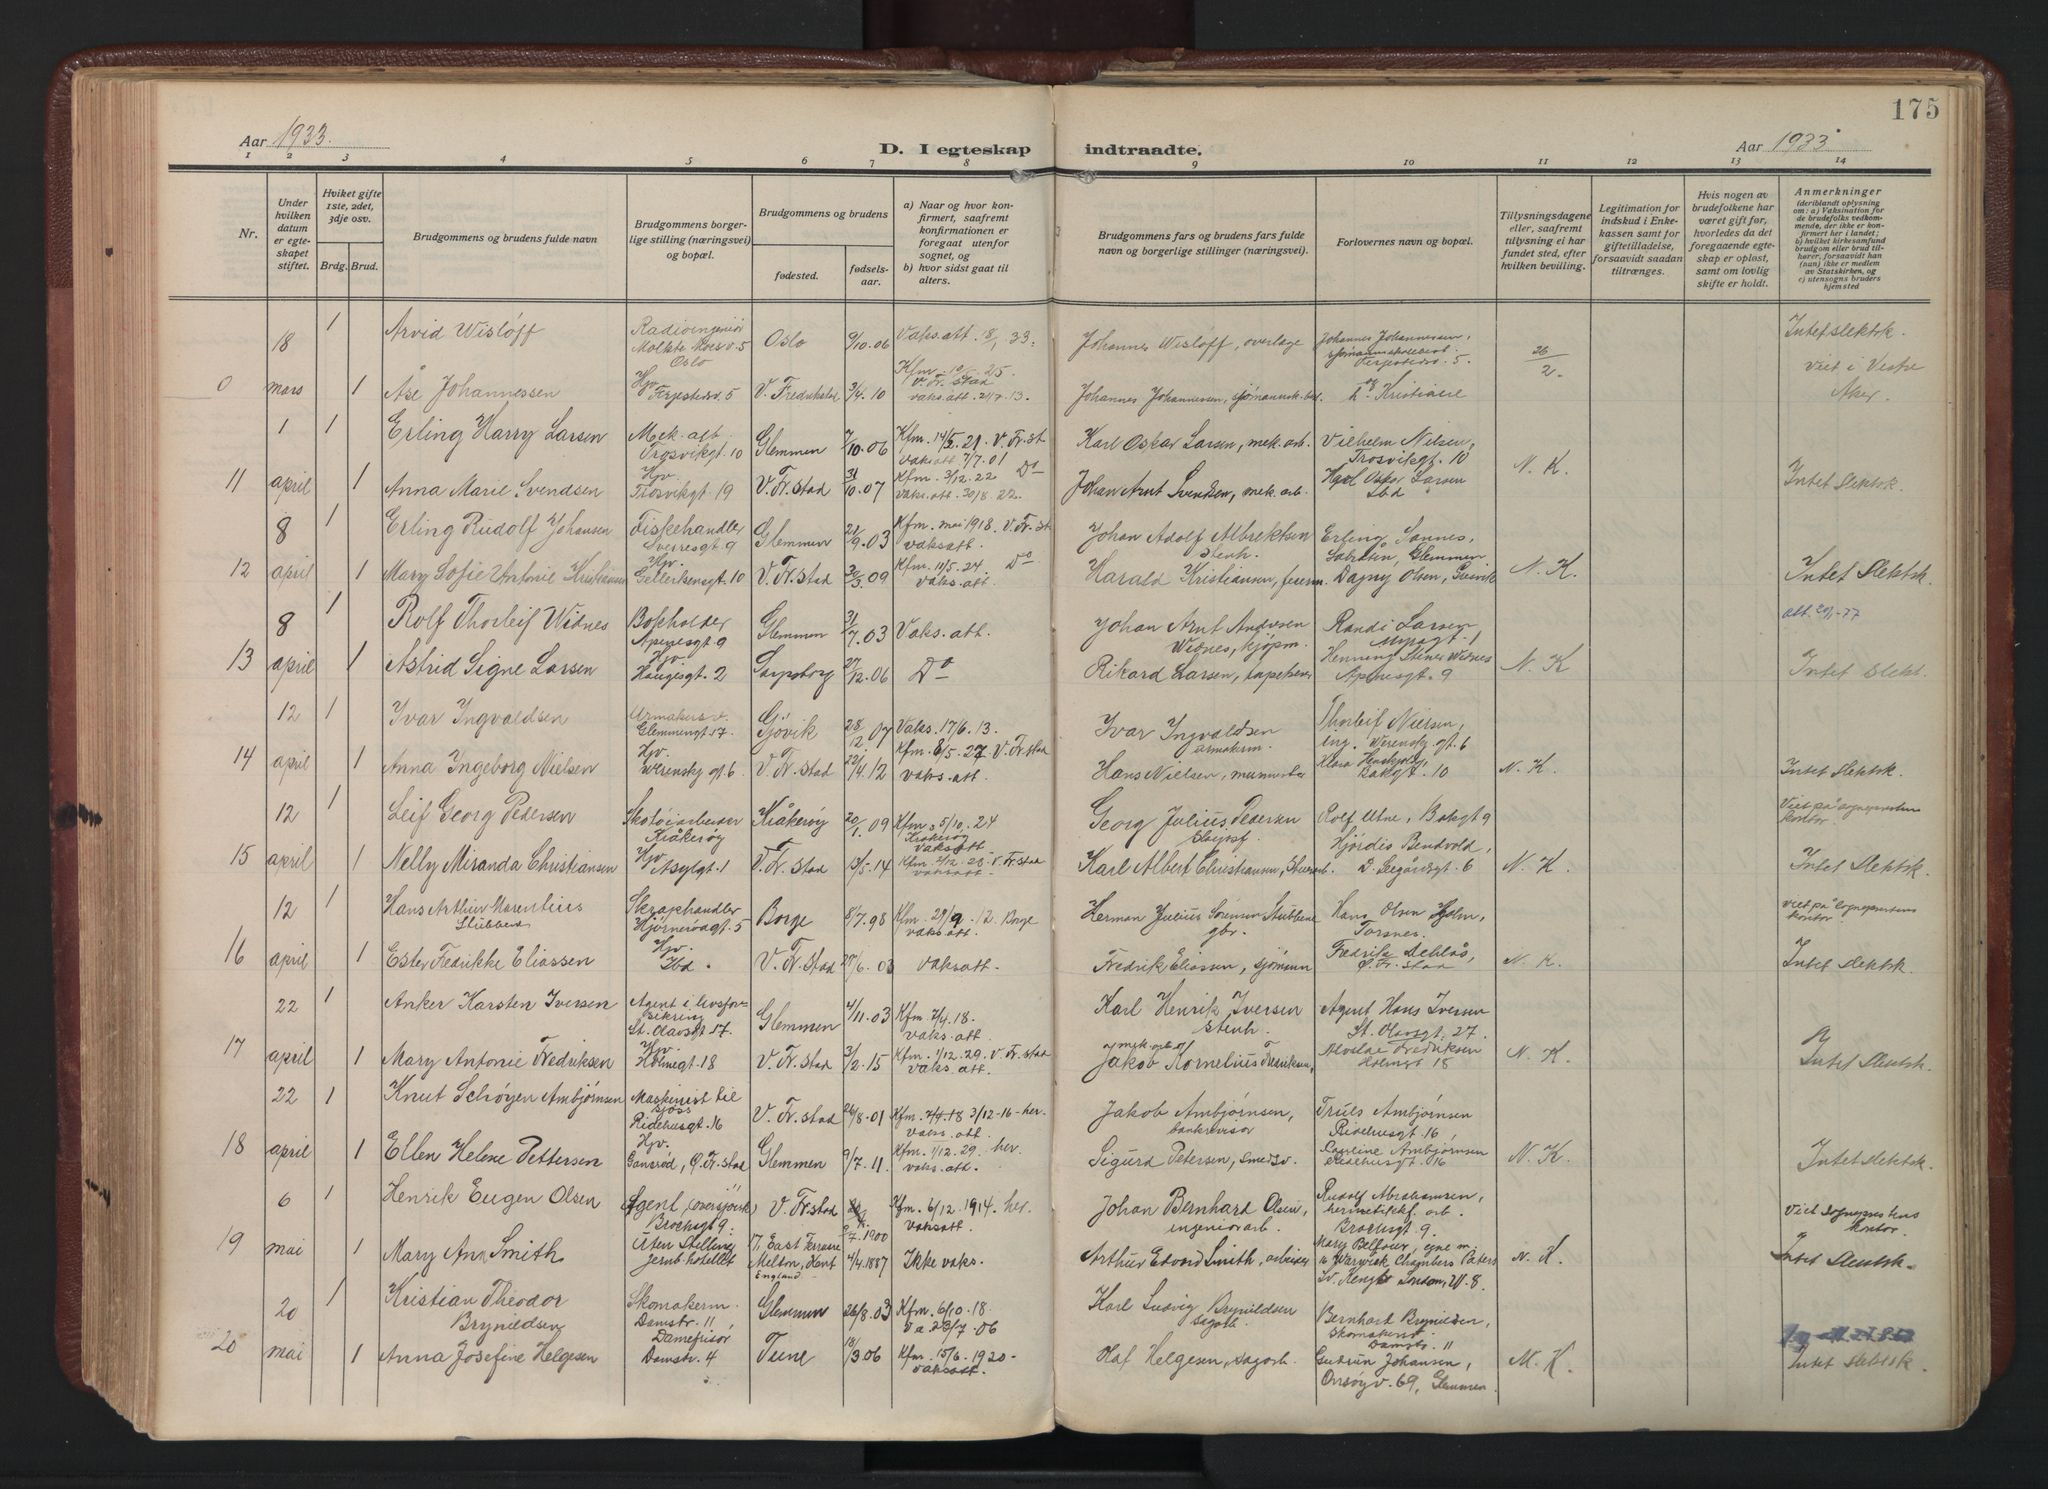 175
Aar 1933.
D. I egteskap indtraadte.
Aar 1933
1 2 3 4 5 6 7 8 9 10 11 12 13 14
Nr.
Under hvilken datum er egteskapet stiftet.
Hviket gifte 1ste, 2det, 3dje osv.
Brdg. Brud.
Brudgommens og brudens fulde navn
Brudgommens borgerlige stilling (næringsvei) og bopæl.
Brudgommens og brudens
fødested.
fødselsaar.
a) Naar og hvor konfirmert, saafremt konfirmationen er foregaat utenfor sognet, og
b) hvor sidst gaat til alters.
Brudgommens fars og brudens fars fulde navn og borgerlige stillinger (næringsvei).
Forlovernes navn og bopæl.
Tillysningsdagene eller, saafremt tillysning ei har fundet sted, efter hvilken bevilling.
Legitimation for indskud i Enkekassen samt for giftetilladelse, forsaavidt saadan tiltrænges.
Hvis nogen av brudefolkene har været gift før, hvorledes da det foregaaende egteskap er opløst, samt om lovlig skifte er holdt.
Anmerkninger
(deriblandt oplysning om: a) Vaksination for de brudefolks vedkommende, der ikke er konfirmert her i landet; b) hvilket kirkesamfund brudgom eller brud tilhører, forsaavidt han (hun) ikke er medlem av Statskirken, og c) utensogns bruders hjemsted
18 1 Arvid Wisløff Radioingeniør Moltke Moes v. 5 Oslo Oslo 9/10.06 Vaks.att. 18/1 33. Johannes Wisløff, overlage Johannes Johannessen, Ferjestedsv. 5. 26/2 Intet slektsk.
0 mars 1 Åse Johannessen Hjv. Ferjestedsv. 5 V. Fredrikstad 3/4 10 V. Fr. stad vaks.att. Johannes Johannessen, Viet i Vestre Aker.
1 1 Erling Harry Larsen Mek. arb. Trosvikgt. 10 Glemmen 7/10.06 Kfm. 14/5.21. V. Fr. st. vaks att 7/7.01 Karl Oskar Larsen, mek. arb. Vilhelm Nilsen, Trosvikgt. 10
11 april 1 Anna Marie Svendsen Hjv. Trosvikgt 19 V. Fr. stad 31/10.07 Kfm. 3/12.22 Do vaks.att. 30/8.22. Johan Arnt Svendsen, mek. arb. Oskar Larsen Ibd N. K. Intet slektsk.
8 1 Erling Rudolf Johansen Fiskehandler Sverresgt. 9 Glemmen 9.03 Kfm. mai 1918. V. Fr. st. vaksatt. Johan Adolf Albrektsen stenh. Erling Sannes, Glemmen
12 april 1 Mary Sofie Antonie Kristiansen Hjv. Gellerkensgt. 10 V. Fr. stad 30/3.09 Kfm. 11/5.24. Do vaks.att. Harald Kristiansen, Dagny Olsen, N. K. Intet slektsk.
8 1 Rolf Thorleif Widnes Bokholder Apenesgt 9 Glemmen 31/7.03 Vaks.att. Johan Arnt Andersen Widnes, kjøpm. Randi Larsen att. 20/1-77
13 april 1 Astrid Signe Larsen Hjv. Haugesgt. 2 Sarpsborg 27/12.06 Do Rikard Larsen, Henning Widnes Apenesgt. 9 N. K Intet slekt.
12 1 Ivar Ingvaldsen Urmakersv. Glemmengt 17. Gjøvik 28/12. 07 Vaks. 17/6.13. Ivar Ingvaldsen urmakerm. Thorleif Nielsen, ing. Werensky gt. 6
14 april 1 Anna Ingeborg Nielsen Hjv. Werensky gt. 6 V. Fr. stad 22/4.12 Kfm. 8/5.27 V. Fr. stad vaks.att. Hans Nielsen, Bakgt. 10 N. K. Intet slektsk.
12 1 Leif Georg Pedersen Skotøiarbeider Kråkerøy Kråkerøy 20/1.09 Kfm. 5/10.24 Kråkerøy vaksatt Georg Julius Pedersen Rolf Utne, Bakgt 9 Viet på sogneprestens kontor.
15 april 1 Nelly Miranda Christiansen Hjv. Asylgt. 1 V. Fr. stad 13/5.14 Kfm. 2/12.28 - V. Fr. stad vaksatt. Karl Albert Christiansen, Hjørdis Bendvold, 6 N. K. Intet slektsk.
12 1 Hans Arthur Marentius Stubberud Skraphandler Hjørnerødgt. 5 Borge 8/7.98 Kfm. 29/9.12. Borge vaks att. Herman Julius Sørensen Stubberud gbr. Hans Olsen Holm, Torsnes. viet på sogneprestens kontor.
16 april 1 Ester Fredrikke Eliassen Hjv. Ibd. V. Fr. stad 27/6.03 vaksatt. Fredrik Eliassen, sjømann Fredrik Dehlås, Ø. Fr. stad N. K. Intet slektsk.
22 1 Anker Karsten Iversen Agent i livsforsikring St. Olavsgt 17. Glemmen 4/11.03 Kfm. 7/4.18. vaks.att. Karl Henrik Iversen stenh. Agent Hans Iversen St. Olavsgt. 27.
17 april 1 Mary Antonie Fredriksen Hjv. Holmegt 18 V. Fr. stad 3/2.15 Kfm. 1/12.29. V. Fr. stad vaks. att. mek. arb. Jakob Kornelius Fredriksen, Fredriksen Holmegt 18 N. K. Intet slektsk.
22 1 Knut Schøyen Ambjørnsen Maskinist til sjøss Ridehusgt. 16 V. Fr. stad 26/8.01 Kfm. 7/4.18 3/12-16 - her. vaks.att. Jakob Ambjørnsen, bankrevisor Truls Ambjørnsen Ridehusgt 16,
18 april 1 Ellen Helene Pettersen Hjv. Gansrød, Ø. Fr. stad Glemmen 9/7.11. Kfm. 1/12.29. her. vaks.att. Sigurd Petersen, smedsv. Pauline Ambjørnsen Ridehusgt. 16 N. K. Intet slektsk.
6 1 Henrik Eugen Olsen Agent (oversjøisk) Brochsgt 9. V. Fr. stad 7.1900 Kfm. 6/12.1914. her. vaksatt. Johan Bernhard Olsen, ingeniørarb. Rudolf Abrahamsen, hermetikkf. arb. Brochsgt. 9. Viet Sogneprestens kontor.
19 mai 1 Mary Ann Smith Uten Stilling Jernb. hotellet 17, East Terrasse Melton, Kent England 4/4.1887 Ikke vaks. Arthur Edvard Smith, arbeider Mary Belfour, Warwick Chambers Paters London, W. 8. N. K. Intet slektsk.
20 1 Kristian Theodor Brynildsen Skomakerm. Damstr. 11, Glemmen 26/8.03 Kfm. 6/10.18. Va 23/7.06 Karl Ludvig Brynildsen sagarb. Bernhart Brynildsen, skomakerm. Damstr. 11
20 mai 1 Anna Josefine Helgesen Damefrisør Damstr. 4 Tune 18/3 06 Kfm. 15/6.1920 - vaksatt. Olaf Helgesen, sagarb. Gudrun Johansen, Onsøyv. 69, Glemmen. N. K. Intet slektsk.